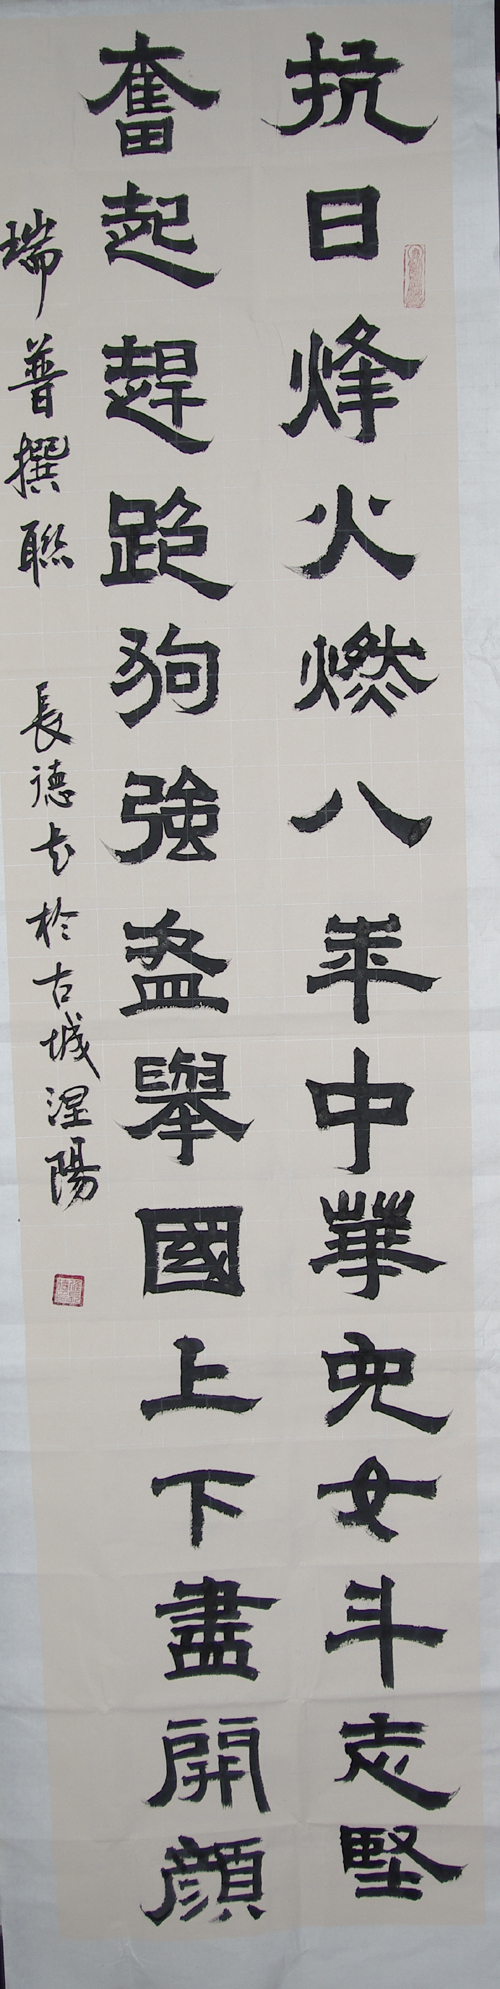 抗日烽火燃八年中華兒女斗志堅
奮起趕跑狗強盗舉國上下盡開顔
瑞普撰聯 長德书於古城涅陽